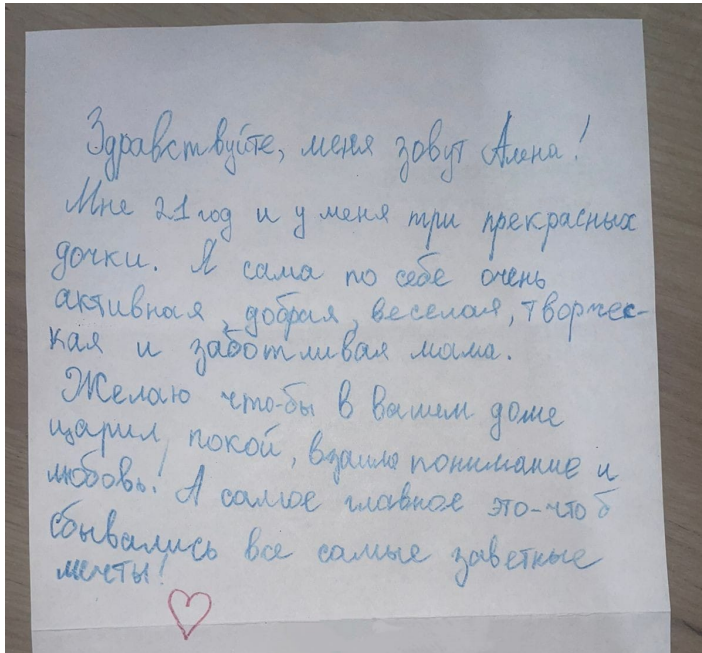 Здравствуйте, меня зовут Алена!
Мне 21 год и у меня три прекрасных
дочки. Я сама по себе очень
активная, добрая, веселая, творчес-
кая и заботливая мама.
Желаю что-бы в вашем доме
царил, покой, взаимо понимание и
любовь! А самое главное это-что б
сбывались все самые заветные
мечты!